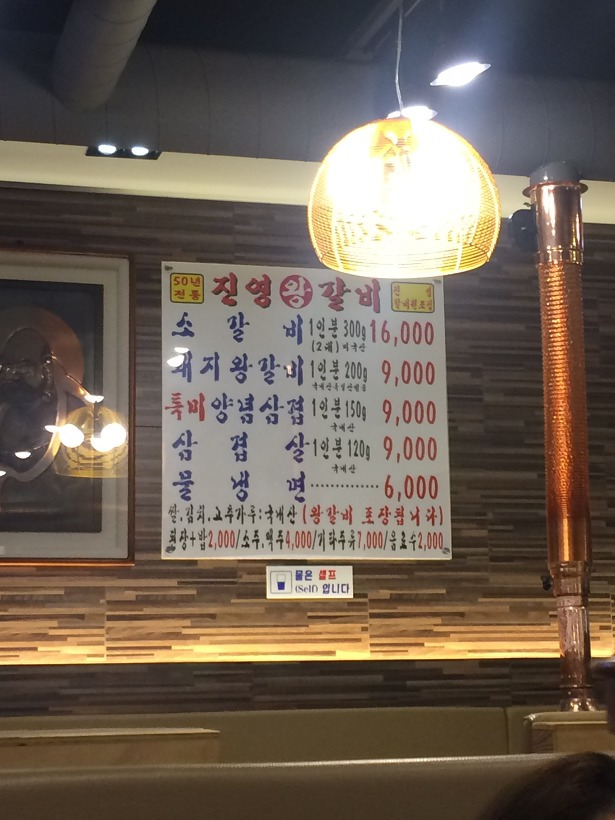 50년
전통
진영왕갈비
소갈비 1인분 300g 16,000
(2대) 미국산
돼지왕갈비 1인분 200g 9,000
특미양념삼겹 1인분 150g 9,000
국내산
삼겹살 1인분 120g 9,000
국내산
물냉면 ............... 6,000
쌀,김치,고추가루:국내산 (왕갈비 포장됩니다)
된장+밥2,000/소주,맥주4,000/기타주류7,000/음료수2,000
물은 셀프
(Self) 입니다